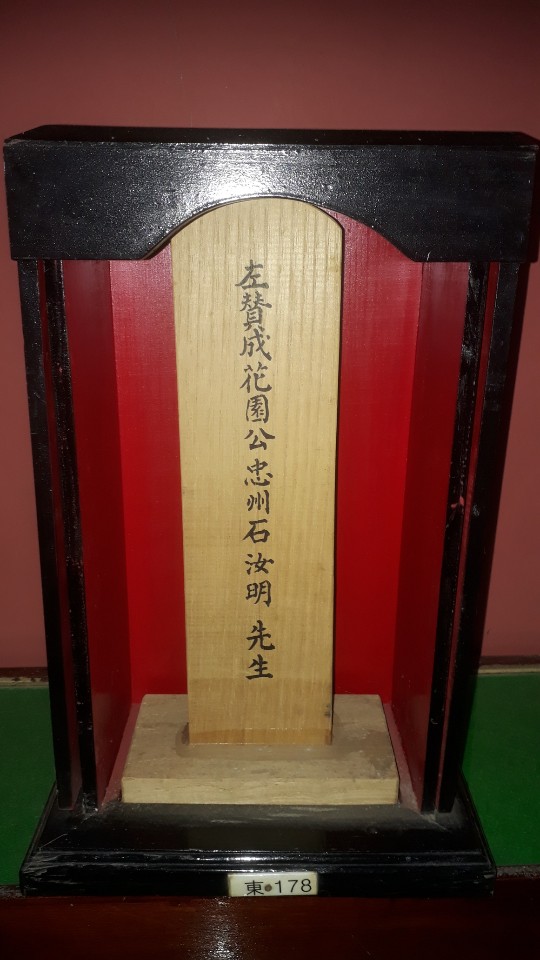 左贊成花園公忠州石汝明 先生
東 178